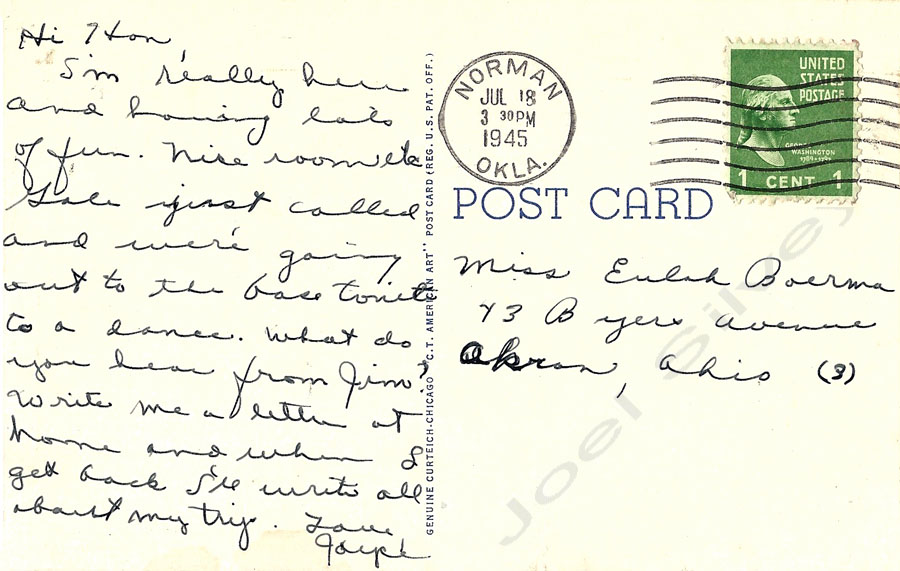 Hi Hon,
I'm really here
and having lots
of fun. Nise room etc
Gale just called
and we're going
out to the base tonite
to a dance. What do
you hear from Jim?
Write me a letter at
home and when I
get back I'll write all
about my trip. Love
GENUINE CURTEICH-CHICAGO "C.T. AMERICAN ART" POST CARD (REG. U.S. PAT. OFF.)
NORMAN
JUL 18
3 30PM
1945
OKLA.
UNITED
STATES
POSTAGE
GEORGE
WASHINGTON
1789-1797
1 CENT 1
POST CARD
Miss Eulah Boerma
73 Byers Avenue
Akron, Ohio (3)
Joel Silvey